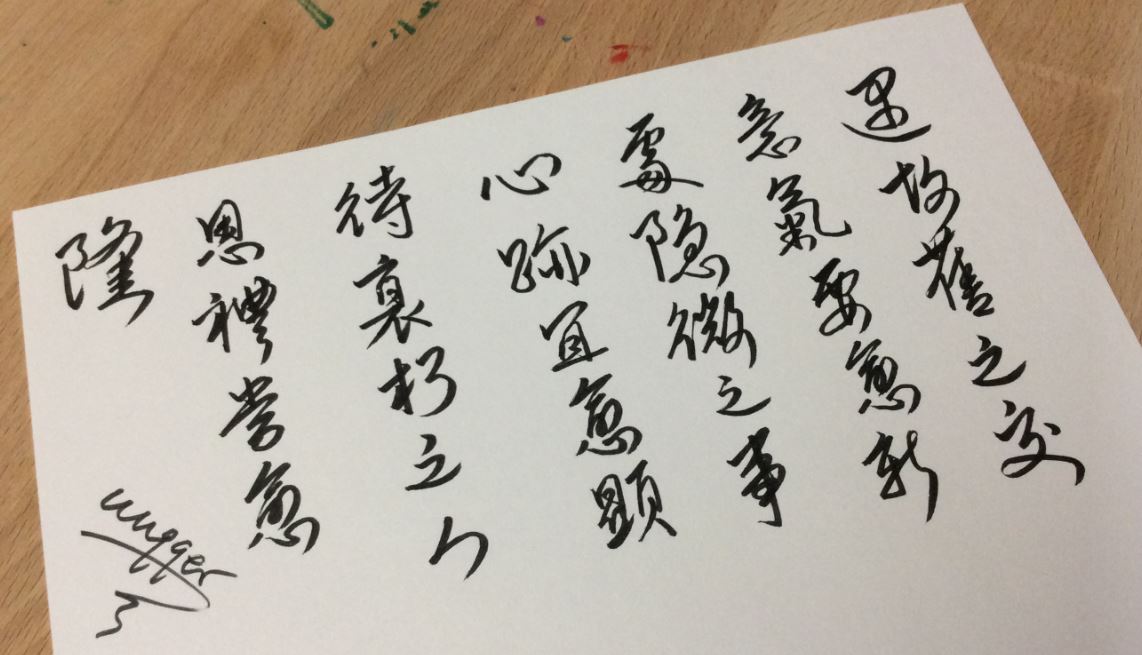 遇故舊之交
意氣要愈新
處隱微之事
心跡宜愈顯
待衰朽之人
恩禮當愈
隆